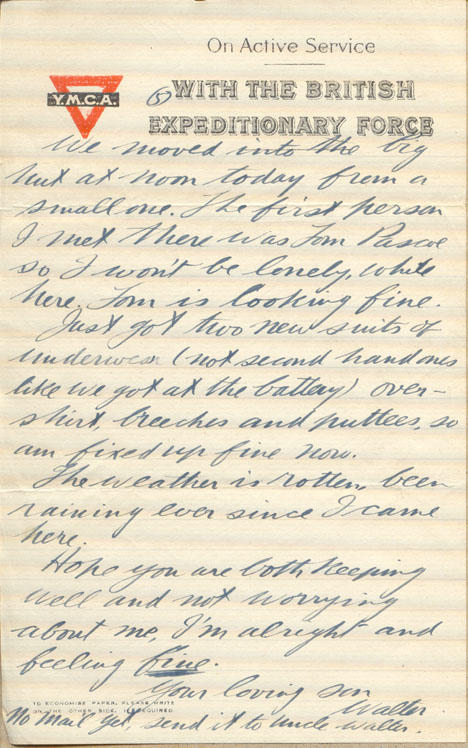 On Active Service
Y.M.C.A.
(5) WITH THE BRITISH
EXPEDITIONARY FORCE
We moved into the big
hut at noon today from a
small one. The first person
I met there was Tom Pascoe
so I won't be lonely, while
here. Tom is looking fine.
Just got two new suits of
underwear (not second hand ones
like we got at the battery) over-
shirt, breeches and puttees, so
am fixed up fine now.
The weather is rotten, been
raining ever since I came
here.
Hope you are both keeping
well and not worrying
about me, I'm alright and
feeling fine.
Your loving son
Walter
TO ECONOMISE PAPER, PLEASE WRITE
ON THE OTHER SIDE, IF REQUIRED
No mail yet, send it to Uncle Walter.